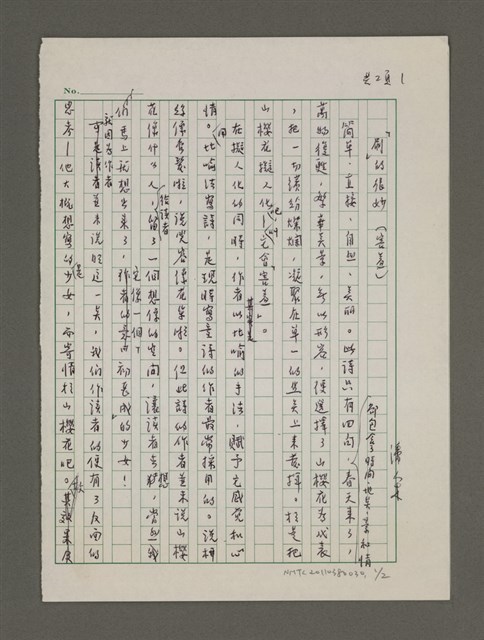 共2頁 1
No.
「刷」的很妙（害羞）
潘人木
簡單、直接、自然、美麗。此詩只有四句，春天來了，
卻包含了時間、地點、景和情
萬物復甦，繁華美景，無以形容，便選擇了山櫻花為代表
，把一切繽紛燦爛，凝聚在單一的焦點上來發揮。於是把
山櫻花擬人化—它會「害羞」。
在擬人化的同時，作者以比喻的手法，賦予它感覺和心
情。用比喻法寫詩，是現時寫童詩的作者最常採用的。說棉
絮像雲啦，說笑容像花朵啦。但此詩的作者並未說山櫻
花像什麼人，留了一個想像的空間，讓讀者去猜想。當然我
給讀者
們馬上就想出來了，它像一個初長成的少女！
可是讀者並未說明這一點，我們作讀者的便有了反面的
就因為作者
思考—他大概想寫的是少女，而寄情於山櫻花吧。